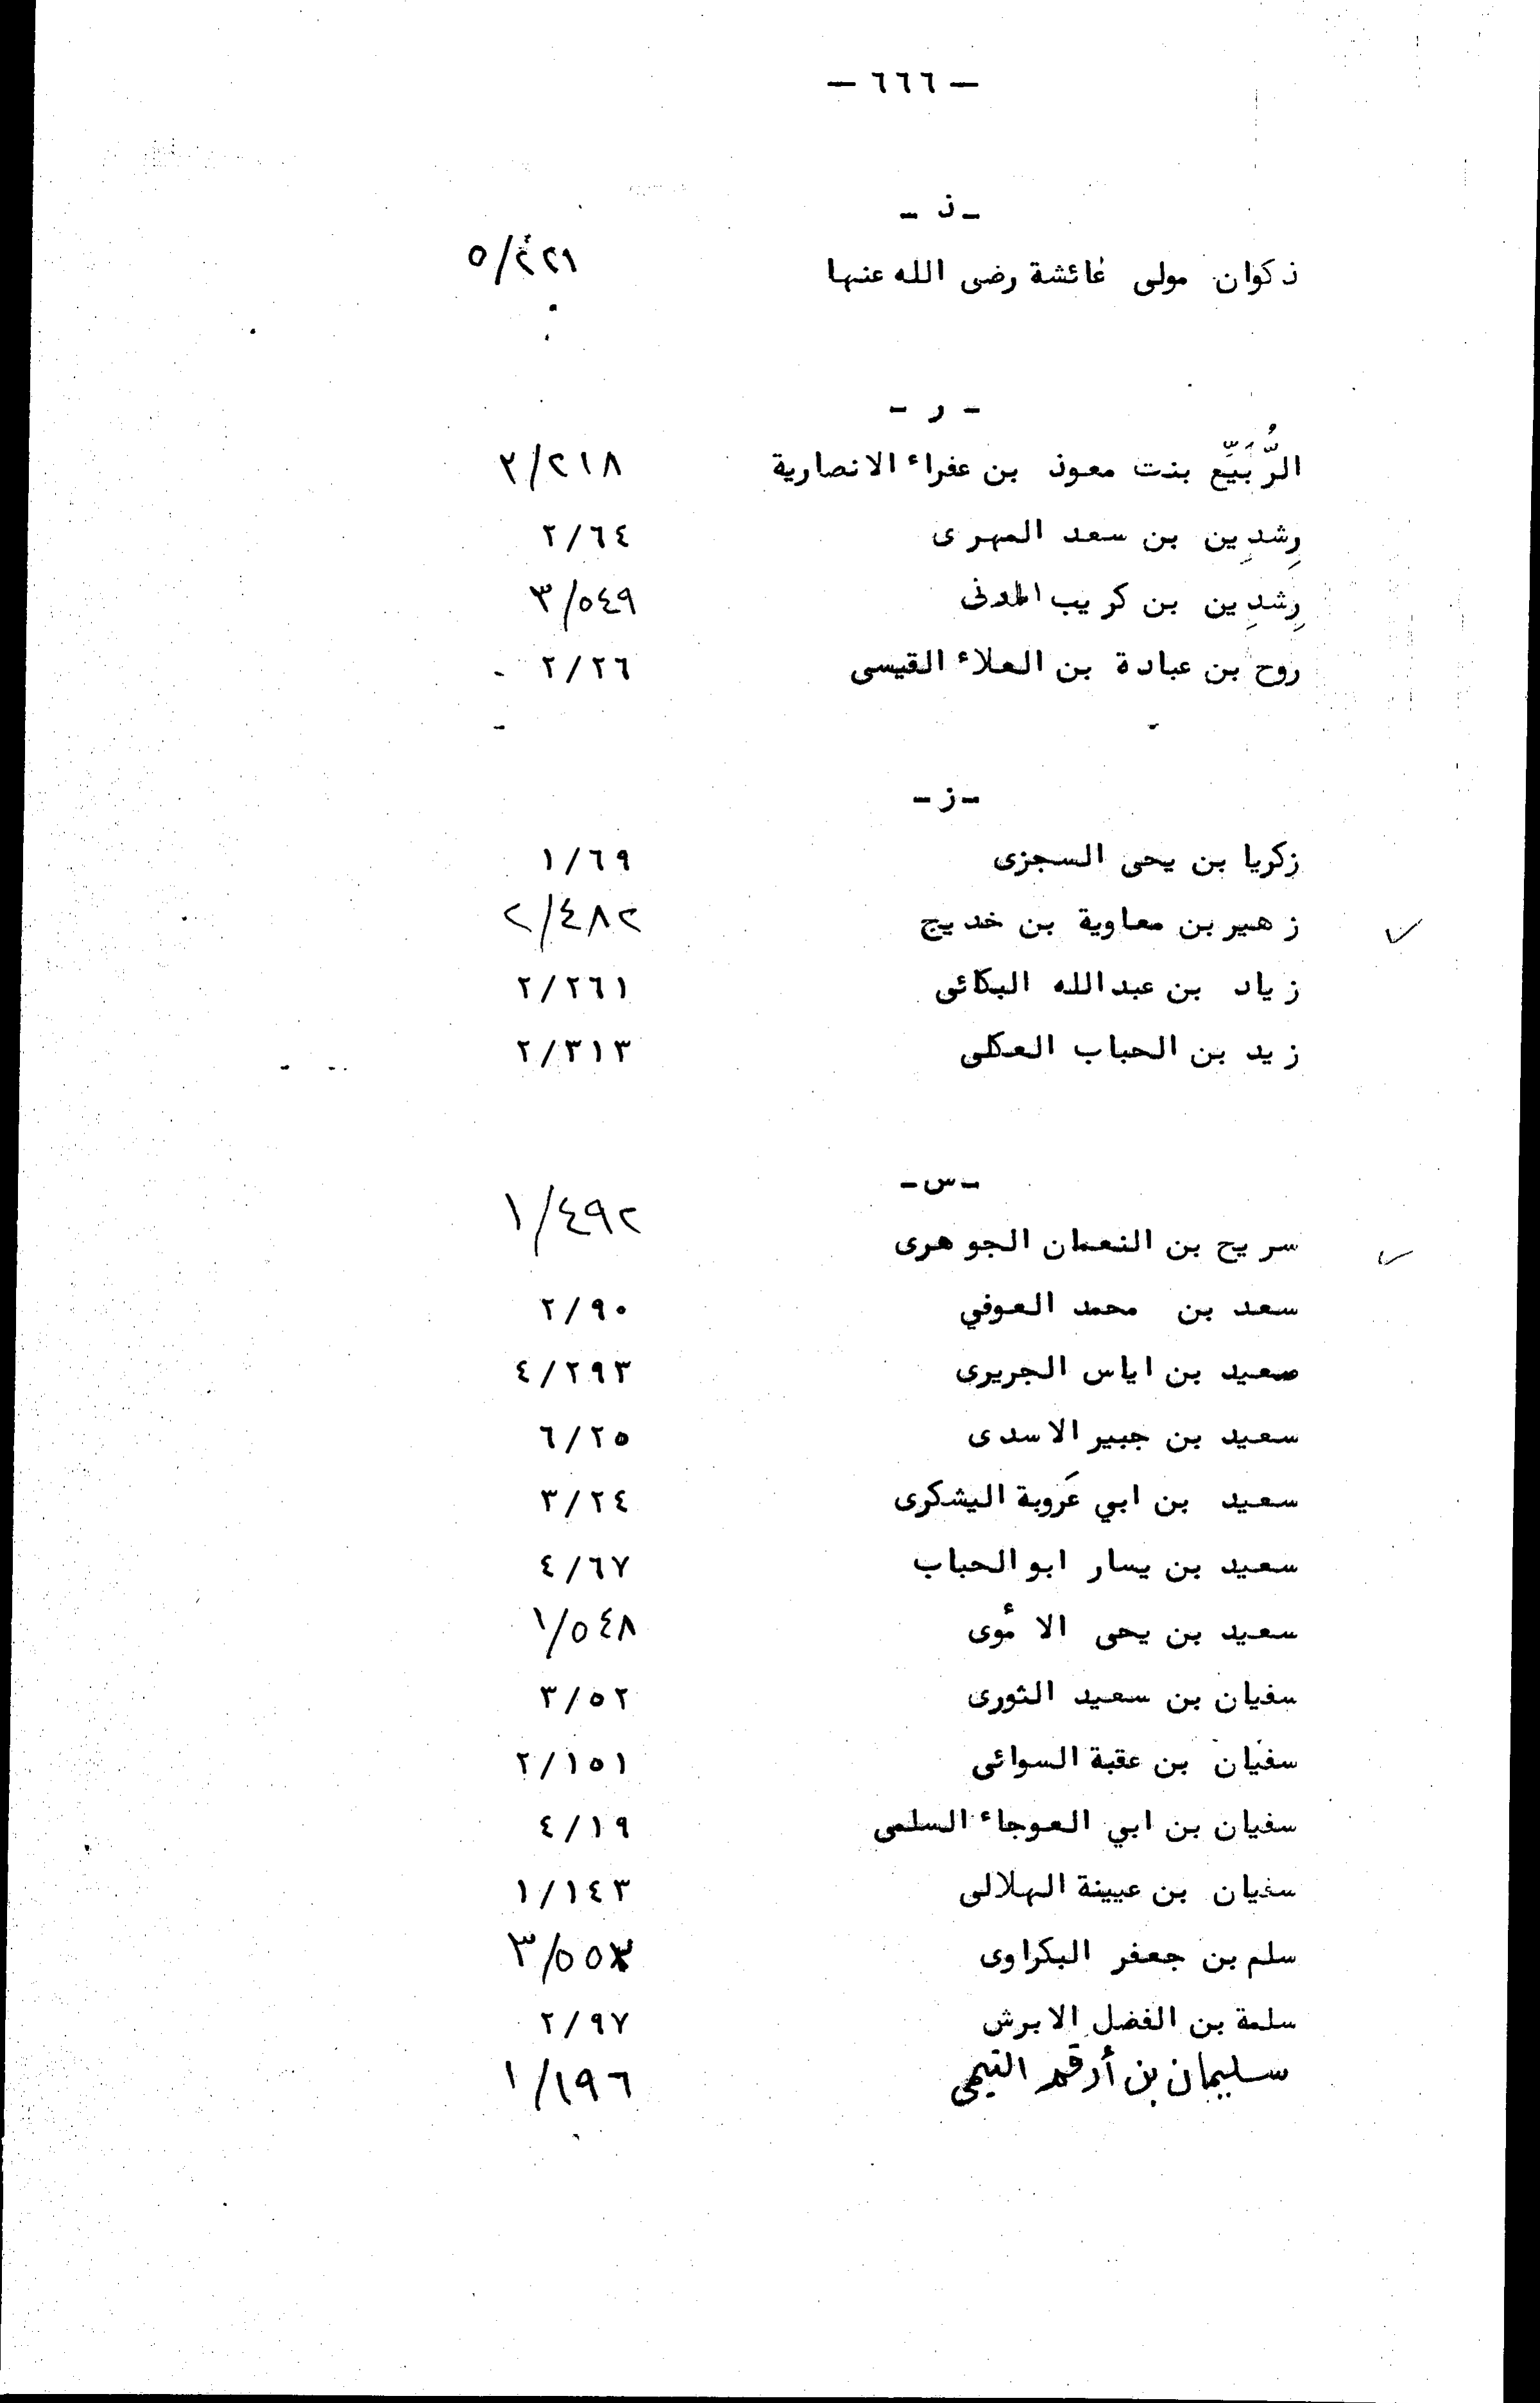 — ٦٦٦ —
- ذ -
ذكوان مولى عائشة رضى الله عنها ٥/٤٢١
- ر -
الرُّبَيِّع بنت معوذ بن عفراء الانصارية ٣/٢١٨
رِشدِين بن سعد المهرى ٢/٦٤
رِشدِين بن كريب المدنى ٣/٥٤٩
روح بن عبادة بن العلاء القيسى ٢/٢٦
- ز -
زكريا بن يحى السجزى ١/٦٩
زهير بن معاوية بن خديج ٢/٤٨٢
زياد بن عبدالله البكائى ٢/٢٦١
زيد بن الحباب العكلى ٢/٣١٣
- س -
سريح بن النعمان الجوهرى ١/٤٩٢
سعد بن محمد العوفي ٢/٩٠
صعيد بن اياس الجريرى ٤/٢٩٣
سعيد بن جبير الاسدى ٦/٢٥
سعيد بن ابي عَروبة اليشكرى ٣/٢٤
سعيد بن يسار ابو الحباب ٤/٦٧
سعيد بن يحى الأموى ١/٥٤٨
سفيان بن سعيد الثورى ٣/٥٢
سفيان بن عقبة السوائى ٢/١٥١
سفيان بن ابي العوجاء السلمى ٤/١٩
سفيان بن عيينة الهلالى ١/١٤٣
سلم بن جعفر البكراوى
سلمة بن الفضل الابرش ٢/٩٧
سليمان بن أرقم التيمى ١/١٩٦